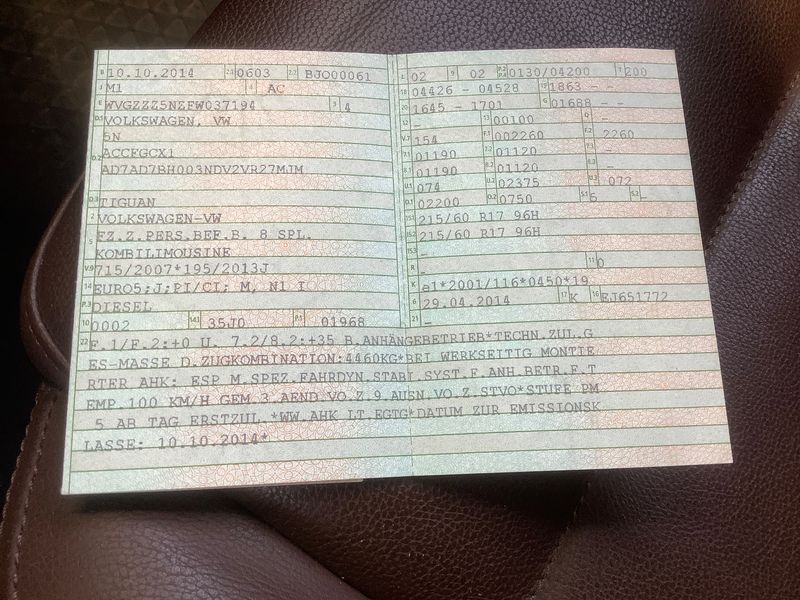 B 10.10.2014 2.1 0603 2.2 BJO00061
J M1 4 AC
E WVGZZZ5NZFW037194 3 4
D.1 VOLKSWAGEN, VW
5N
D.2 ACCFGCX1
AD7AD7BH003NDV2VR27MJM
D.3 TIGUAN
2 VOLKSWAGEN-VW
5 FZ.Z.PERS.BEF.B. 8 SPL.
KOMBILIMOUSINE
V.9 715/2007*195/2013J
14 EURO5;J;PI/CI; M, N1 I
P.3 DIESEL
10 0002 14.1 35J0 P.1 01968
L 02 9 02 P.2 P.4 0130/04200 T 200
18 04426 - 04528 19 1863 - -
20 1645 - 1701 G 01688 - -
12 - 13 00100 Q -
V.7 154 F.1 002260 F.2 2260
7.1 01190 7.2 01120 7.3 -
8.1 01190 8.2 01120 8.3 -
U.1 074 U.2 02375 U.3 072
O.1 02200 O.2 0750 S.1 5 S.2 -
15.1 215/60 R17 96H
15.2 215/60 R17 96H
15.3 -
R - 11 0
K e1*2001/116*0450*19
6 29.04.2014 17 K 16 EJ651772
21 -
22 F.1/F.2:+0 U. 7.2/8.2:+35 B.ANHÄNGEBETRIEB*TECHN.ZUL.G
ES-MASSE D.ZUGKOMBINATION:4460KG*BEI WERKSEITIG MONTIE
RTER AHK: ESP M.SPEZ.FAHRDYN.STABI.SYST.F.ANH.BETR.F.T
EMP.100 KM/H GEM.3.AEND.VO.Z.9.AUSN.VO.Z.STVO*STUFE PM
5 AB TAG ERSTZUL.*WW.AHK LT.EGTG*DATUM ZUR EMISSIONSK
LASSE: 10.10.2014*